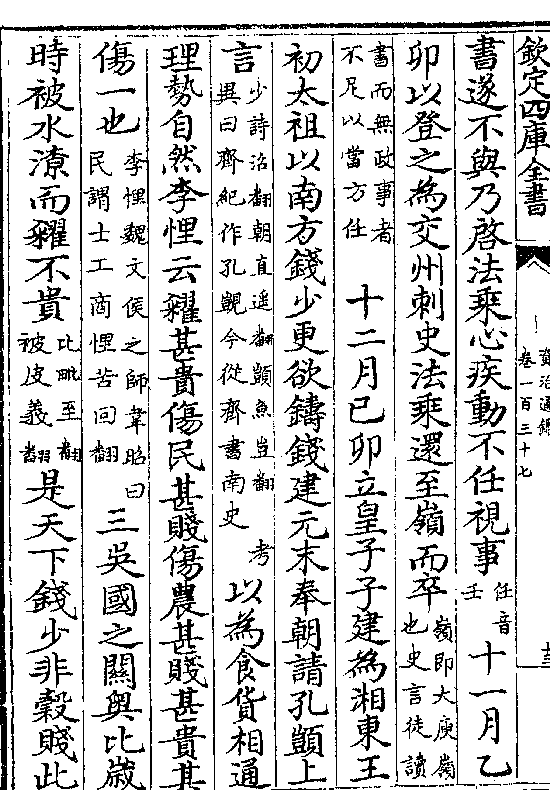 欽定四庫全書
資治通鑑
卷一百三十七
書遂不與乃啓法乘心疾動不任視事任音壬十一月乙
卯以登之為交州刺史法乘還至嶺而卒嶺即大庾嶺也史言徒讀
書而無政事者不足以當方任十二月己卯立皇子子建為湘東王
初太祖以南方錢少更欲鑄錢建元末奉朝請孔顗上
言少詩沼翻朝直遥翻顗魚豈翻考異曰齊紀作孔覬今從齊書南史以為食貨相通
理勢自然李悝云糴甚貴傷民甚賤傷農甚賤甚貴其
傷一也李悝魏文侯之師韋昭曰民謂士工商悝苦回翻三吳國之關奥比歲
時被水潦而糴不貴比毗至翻被皮義翻是天下錢少非穀賤此